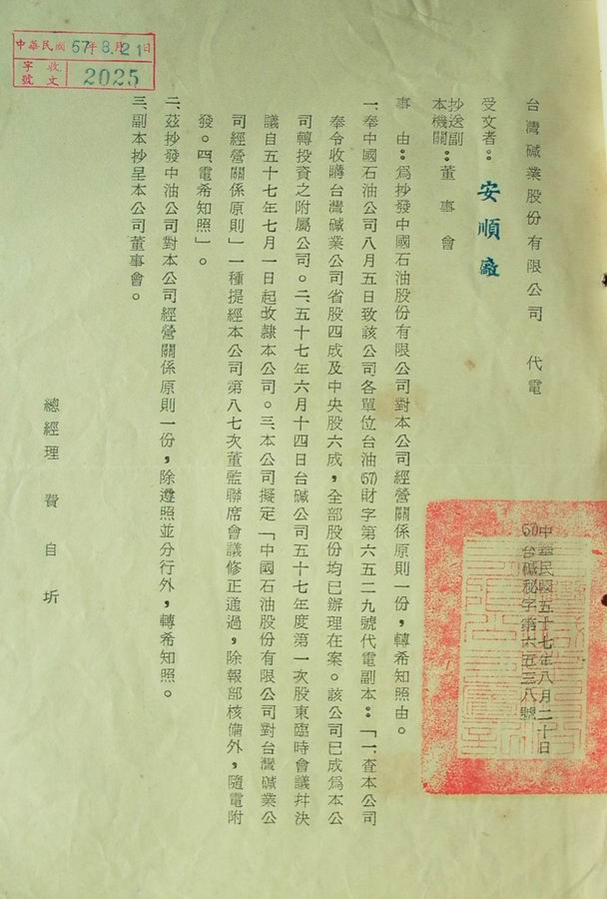 中華民國57年8月21日
收文
字號
2025
台灣碱業股份有限公司 代電
中華民國五十七年八月二十日
(57)台碱秘字第六五三八號
受文者：安順廠
抄送副本機關：董事會
事由：為抄發中國石油股份有限公司對本公司經營關係原則一份，轉希知照由。
一、奉中國石油公司八月五日致該公司各單位台油(57)財字第六五二九號代電副本：「一、查本公司
奉令收購台灣碱業公司省股四成及中央股六成，全部股份均已辦理在案。該公司已成為本公
司轉投資之附屬公司。二、五十七年六月十四日台碱公司五十七年度第一次股東臨時會議并決
議自五十七年七月一日起改隸本公司。三、本公司擬定「中國石油股份有限公司對台灣碱業公
司經營關係原則」一種提經本公司第八七次董監聯席會議修正通過，除報部核備外，隨電附
發。四、電希知照」。
二、茲抄發中油公司對本公司經營關係原則一份，除遵照並分行外，轉希知照。
三、副本抄呈本公司董事會。
總經理 費自圻